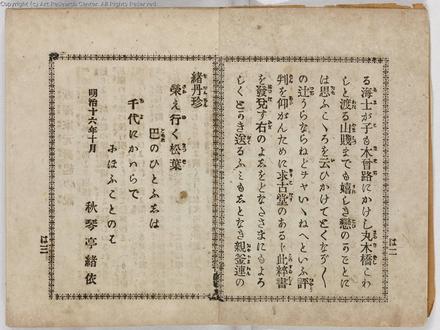 Copyright (c) Art Research Center. All Rights Reserved.
る海士が子も木曾路にかけし丸木橋こわ
しと渡る山賤までも嬉しき戀のことに
は思ふこゝろを云ひかけてとくながく
の辻うらならねどチヤいゝねへといふ評
判を仰がんために求古堂のあるじ此粹書
を發兌す右のよゑをどなたさまにもよろ
しくとかき送るふみもゑとなき親釜連の
は二
緒丹珍
榮え行く松葉
巴のひとふゑは
千代にかハらで
おほふことのは
明治十六年十月
秋琴亭緒依
は三